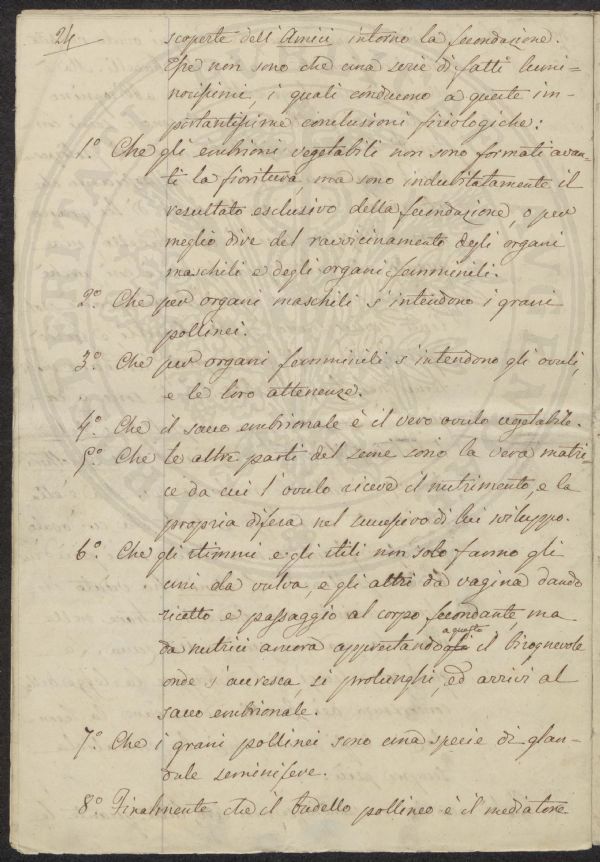 24
scoperte dell'Amici intorno la fecondazione.
Esse non sono che una serie di fatti lumi-
nosissimi, i quali conducono a queste im-
portantissime conclusioni fisiologiche:
1.° Che gli embrioni vegetabili non sono formati avan-
ti la fioritura, ma sono indubitatamente il
resultato esclusivo della fecondazione, o per
meglio dire del ravvicinamento degli organi
maschili e degli organi femminili.
2.° Che per organi maschili s'intendono i grani
pollinei.
3.° Che per organi femminili s'intendono gli ovuli,
e le loro attenenze.
4.° Che il sacco embrionale è il vero ovulo vegetabile.
5.° Che le altre parti del seme sono la vera matri-
ce da cui l'ovulo riceve il nutrimento, e la
propria difesa nel successivo di lui sviluppo.
6.° Che gli stimmi e gli stili non solo fanno gli
uni da vulva, e gli altri da vagina dando
ricetto e passaggio al corpo fecondante, ma
da nutrici ancora apprestando a questo il bisognevole
onde s'accresca, si prolunghi, ed arrivi al
sacco embrionale.
7.° Che i grani pollinei sono una specie di glan-
dule seminifere.
8.° Finalmente che il budello pollineo è il mediatore